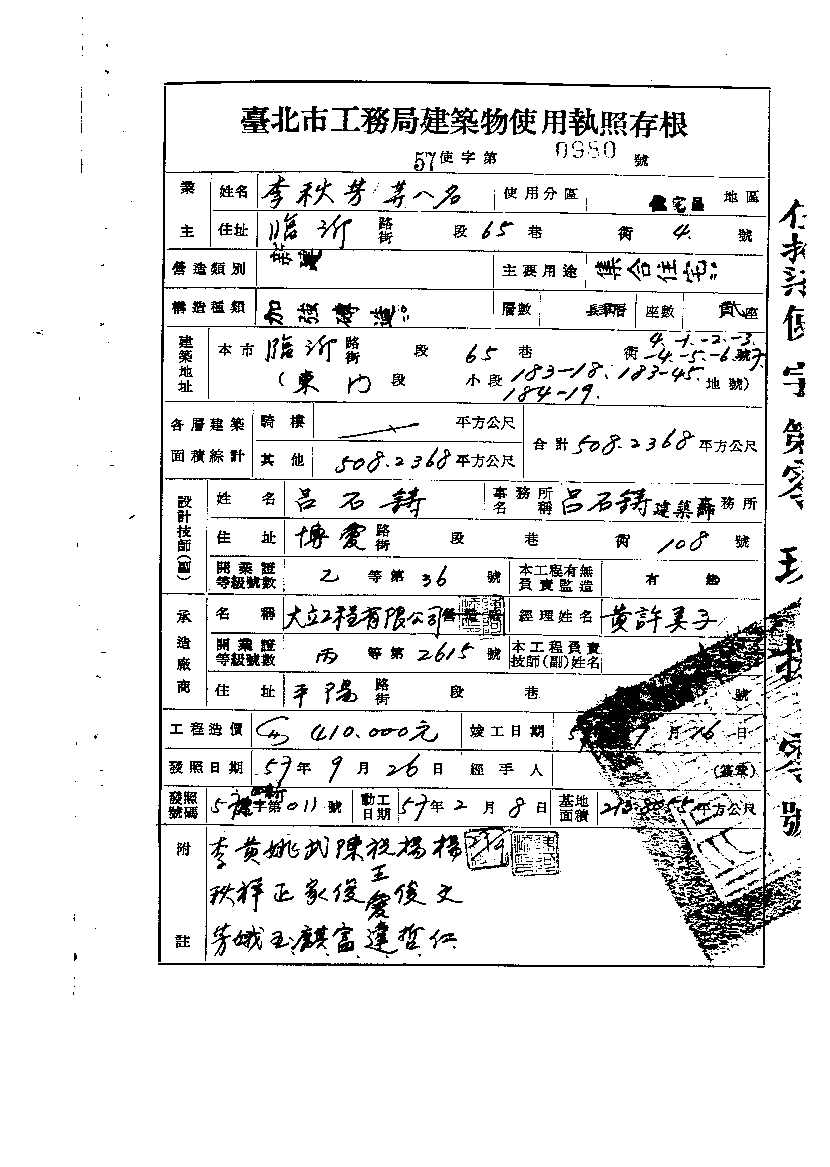 臺北市工務局建築物使用執照存根
57使字第 0980 號
業主 姓名 李秋芳等八名 使用分區 住宅區 地區
住址 臨沂 路街 段 65 巷 衖 4. 號
營造類別 主要用途 集合住宅
構造種類 加強磚造 層數 層 座數 貳座
建築地址 本市 臨沂 路街 段 65 巷 衖 4.-1.-2.-3.-4.-5.-6. 號
(東門段 小段 183-18. 183-45. 184-19. 地號)
各層建築面積綜計 騎樓 平方公尺 合計 508.2368 平方公尺
其他 508.2368 平方公尺
設計技師(副) 姓名 呂石鑄 事務所名稱 呂石鑄建築師事務所
住址 博愛 路街 段 巷 衖 108 號
開業證等級號數 乙 等第 36 號 本工程有無負責監造 有
承造廠商 名稱 大立工程有限公司 經理姓名 黃許美子
開業證等級號數 丙 等第 2615 號 本工程負責技師(副)姓名
住址 平陽 路街 段 巷 號
工程造價 410.000元 竣工日期 月 26 日
發照日期 57年9月26日 經手人 (簽章)
發照號碼 57 字第 011 號 動工日期 57年2月8日 基地面積 213.8055 平方公尺
附註
李黃姚武陳祝楊楊
秋祥正家俊王俊文
芳娥玉麒富達哲仁
使字第零 零號